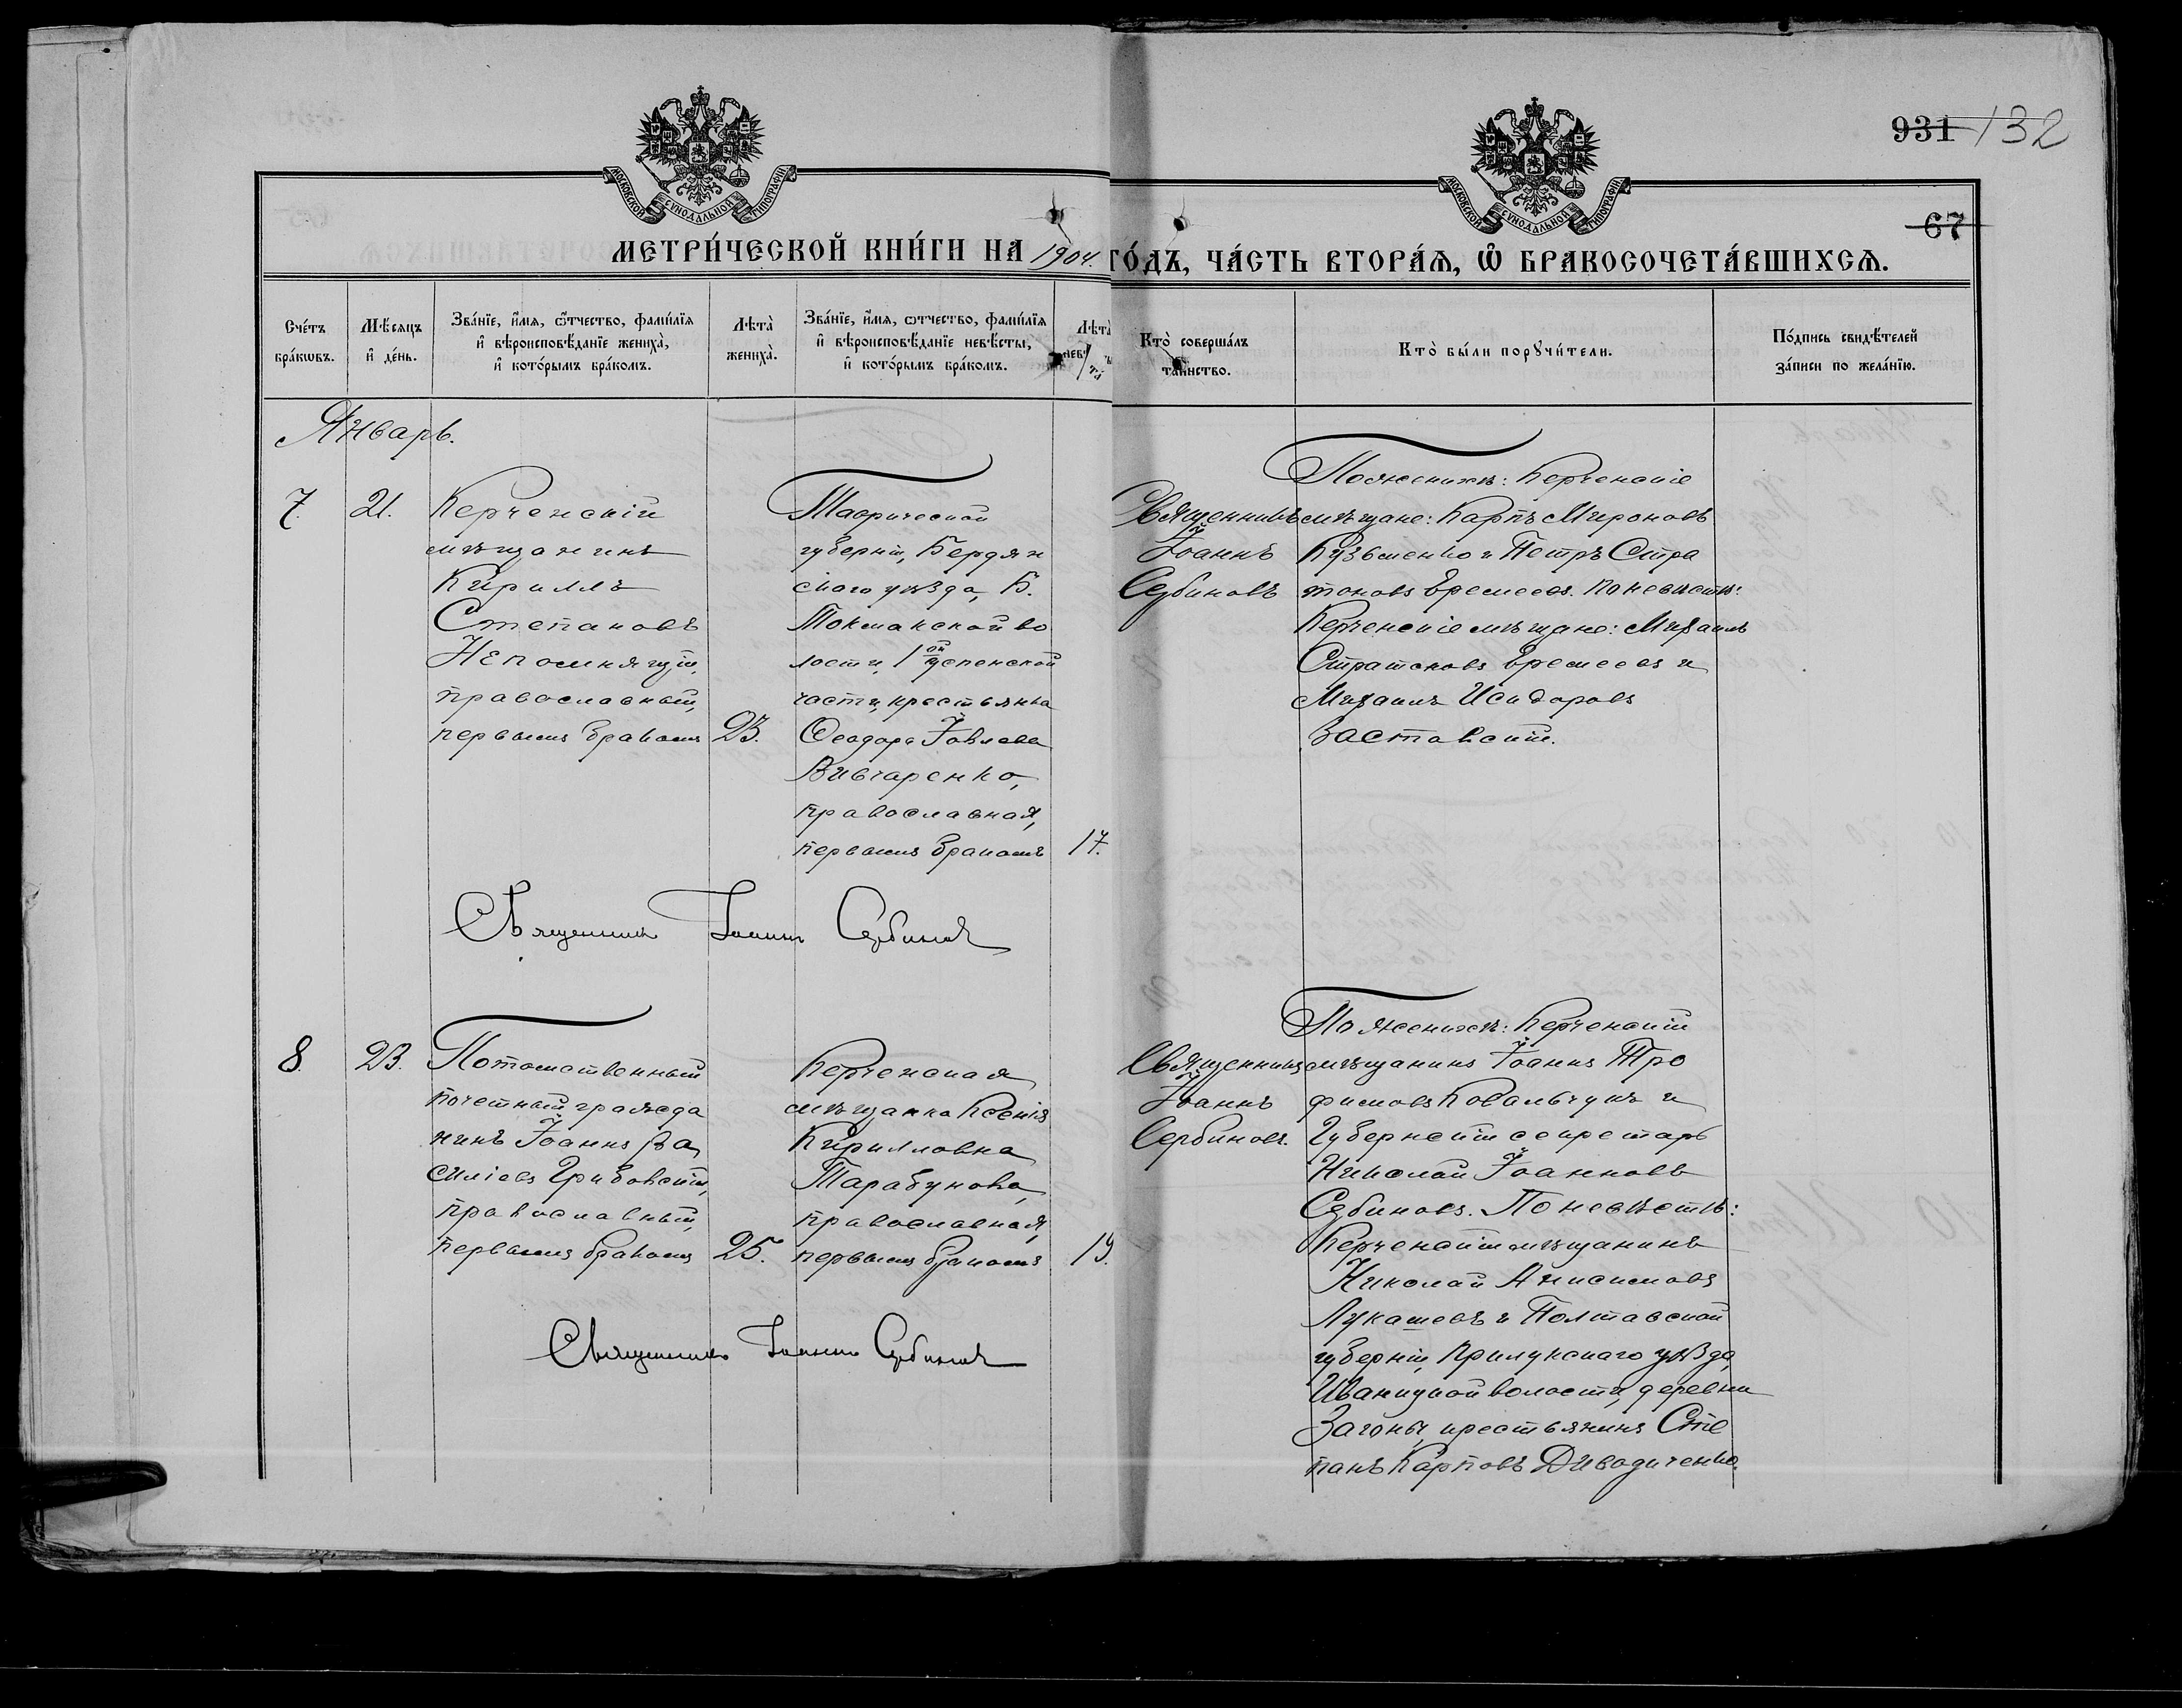 931 132
67
МОСКОВСКОЙ СѴНОДАЛЬНОЙ ТИПОГРАФІИ
МОСКОВСКОЙ СѴНОДАЛЬНОЙ ТИПОГРАФІИ
МЕТРИ́ЧЕСКОЙ КНИ́ГИ НА 1904.
ГО́ДЪ, ЧА́СТЬ ВТОРА́Ѧ, Ѽ БРАКОСОЧЕТА́ВШИХСѦ.
Сче́тъ
бра́кѡвъ.
Мѣ́сяцъ
и҆ де́нь.
Зва́нїе, и҆́мя, ѻ҆́тчество, фами́лїя
и҆ вѣроисповѣ́данїе жениха̀,
и҆ кото́рымъ бра́комъ.
Лѣта̀
жениха̀.
Зва́нїе, и҆́мя, ѻ҆́тчество, фами́лїя
и҆ вѣроисповѣ́данїе невѣ́сты,
и҆ кото́рымъ бра́комъ.
Лѣта̀
Кто̀ соверша́лъ
та́инство.
Кто̀ бы́ли порꙋчи́тели.
По́дпись свидѣ́телей
за́писи по жела́нїю.
Январь.
7.
21.
Керченскій
мѣщанинъ
Кириллъ
Степановъ
Непомнящій,
православный,
первымъ бракомъ
23.
Таврической
губерніи, Бердян
скаго уѣзда, Б.
Токмакской во
лости, 1ой Успенской
части, крестьянка
Ѳеодора Іовлева
Вивчаренко,
православная,
первымъ бракомъ
17.
Священникъ
Іоаннъ
Сербиновъ
По женихѣ: Керченскіе
мѣщане: Карпъ Мироновъ
Кузьменко и Петръ Стра
тоновъ Еремеевъ. По невѣстѣ:
Керченскіе мѣщане: Михаилъ
Стратоновъ Еремеевъ и
Михаилъ Исидоровъ
Заставскій.
Священникъ Іоаннъ Сербиновъ
8.
23.
Потомственный
почетный гражда
нинъ Іоаннъ Ва
силіевъ Грибовскій,
православный,
первымъ бракомъ
25.
Керченская
мѣщанка Ксенія
Кирилловна
Тарабунова,
православная,
первымъ бракомъ
19.
Священникъ
Іоаннъ
Сербиновъ.
По женихѣ: Керченскій
мѣщанинъ Іоаннъ Тро
фимовъ Ковальчукъ и
Губернскій секретарь
Николай Іоанновъ
Сербиновъ. По невѣстѣ:
Керченскій мѣщанинъ
Николай Анисимовъ
Лукашевъ и Полтавской
губерніи, Прилукскаго уѣзда,
Иваницкой волости, деревни
Загоны, крестьянинъ Сте
панъ Карповъ Диводиченко.
Священникъ Іоаннъ Сербиновъ